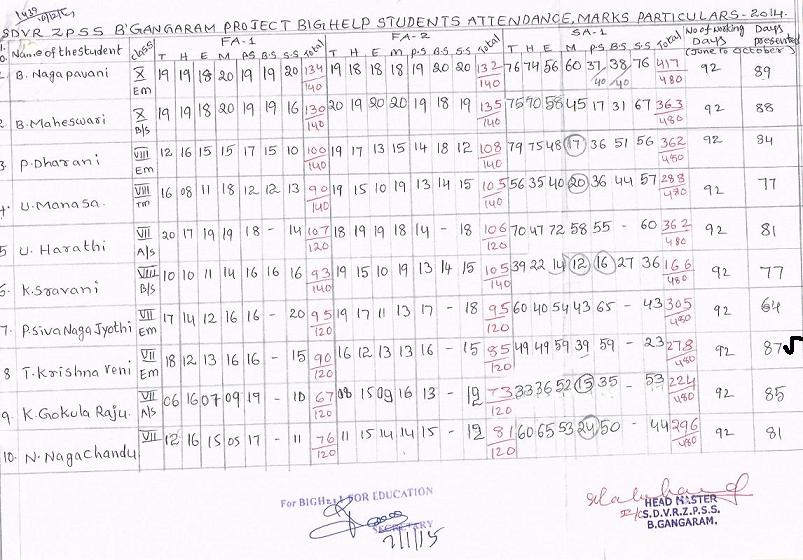 1439
SDVR ZPSS B'GANGARAM PROJECT BIGHELP STUDENTS ATTENDANCE, MARKS PARTICULARS-2014.
Name of the student class FA-1 FA-2 SA-1 No of working Days (June to October) Days presented
T H E M P.S B.S S.S Total T H E M P.S B.S S.S Total T H E M P.S B.S S.S Total
B. Nagapavani X Em 19 19 18 20 19 19 20 134/140 19 18 18 18 19 20 20 132/140 76 74 56 60 37/40 38/40 76 417/480 92 89
2 B. Maheswari X B/s 19 19 18 20 19 19 16 130/140 20 19 20 20 19 18 19 135/140 75 70 58 45 17 31 67 363/480 92 88
3. P. Dharani VIII Em 12 16 15 15 17 15 10 100/140 19 17 13 15 14 18 12 108/140 79 75 48 17 36 51 56 362/480 92 84
4. U. Manasa. VIII Tm 16 08 11 18 12 12 13 90/140 19 15 10 19 13 14 15 105/140 56 35 40 20 36 44 57 288/480 92 77
5 U. Harathi VII A/s 20 17 19 19 18 - 14 107/120 18 19 19 18 14 - 18 106/120 70 47 72 58 55 - 60 362/480 92 81
6. K. Sravani VIII B/s 10 10 11 14 16 16 16 93/140 19 15 10 19 13 14 15 105/140 39 22 14 12 16 27 36 166/480 92 77
7. P. Siva Naga Jyothi VII Em 17 14 12 16 16 - 20 95/120 19 17 11 13 17 - 18 95/120 60 40 54 43 65 - 43 305/480 92 64
8 T. Krishna veni VII Em 18 12 13 16 16 - 15 90/120 16 12 13 13 16 - 15 85/120 49 49 59 39 59 - 23 278/480 92 87 ✓
9. K. Gokula Raju VII A/s 06 16 07 09 19 - 10 67/120 08 15 09 16 13 - 12 73/120 33 36 52 15 35 - 53 224/480 92 85
10. N. Nagachandu VII 12 16 15 05 17 - 11 76/120 11 15 14 14 15 - 12 81/120 60 65 53 24 50 - 44 296/480 92 81
For BIGHELP FOR EDUCATION
SECRETARY
2/1/15
HEAD MASTER
S.D.V.R.Z.P.S.S.
B.GANGARAM.